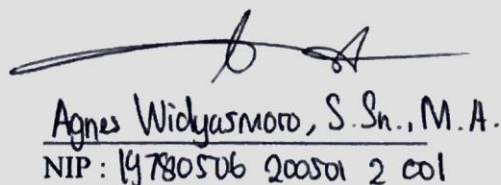 Agnes Widyasmoro, S.Sn., M.A.
NIP : 19780506 200501 2 001